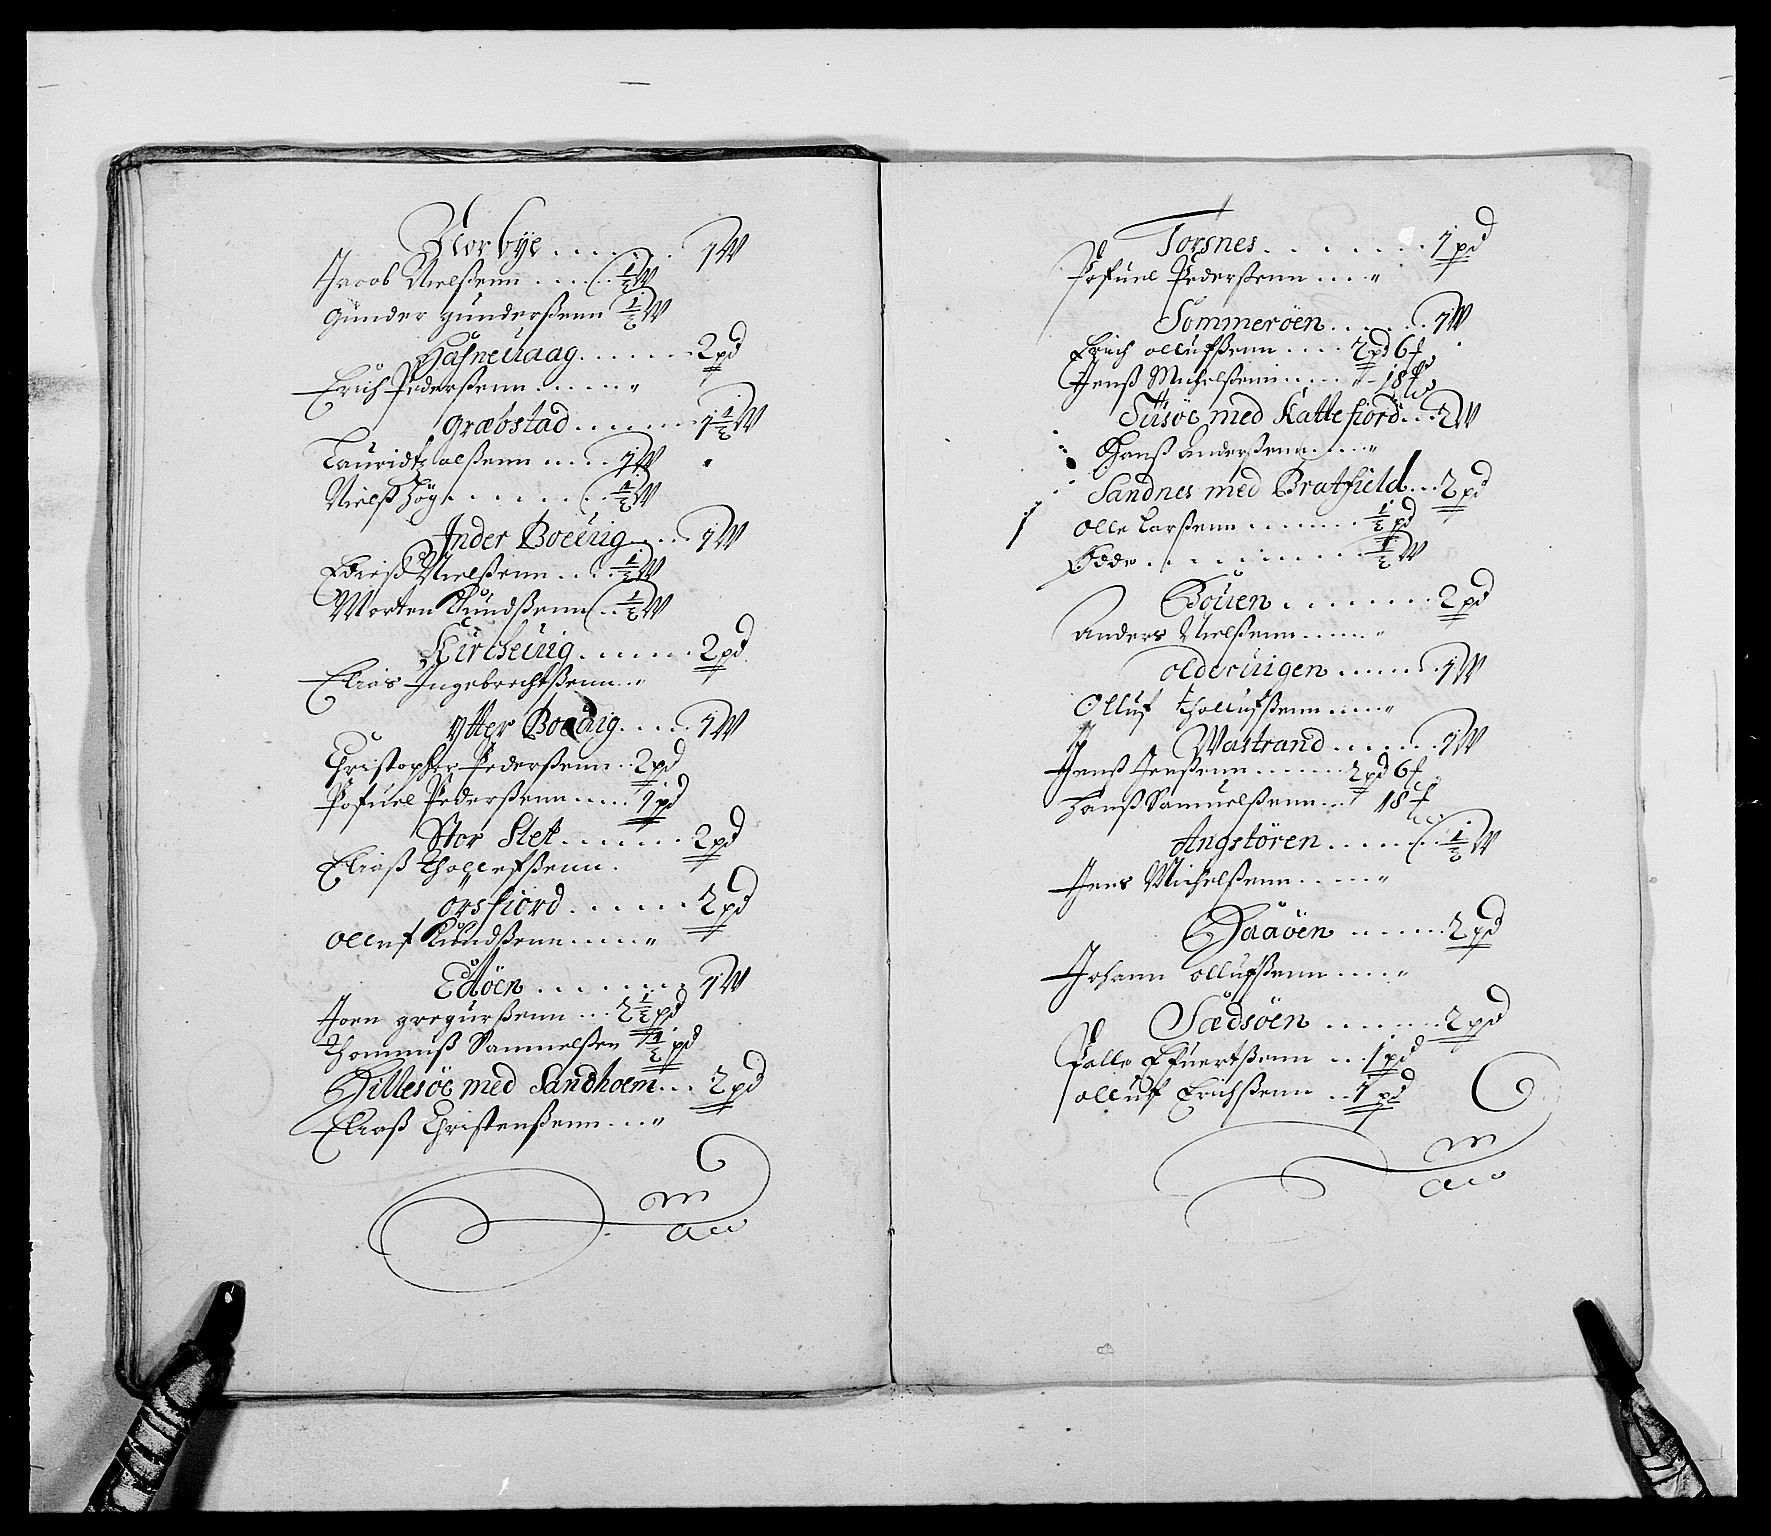 Norbÿe . . . . . . 1 W
Jacob Nielßenn . . . . 1/2 W
Gunder Gunderßenn 1/2 W
Hafneuaag . . . . . . . 2 pd
Erich Pederßenn . . . . . . "
Græbstad . . . . . . 1 1/2 W
Lauridtz olßenn . . . . . 1 W "
Nielß Høÿ . . . . . . . 1/2 W
Inder Boeuig . . . 1 W
Nielßenn . . . . 1/2 W
Morten Knudßenn . . 1/2 W
Kircheuig . . . . . . 2 pd
Elias Ingebrechtßenn . . "
Ytter Boeuig . . . . 1 W
Christopher Pederßenn . . 2 pd
Pofuel Pederßenn . . . . . 1 pd
Stor Slet . . . . . . . 2 pd
Eliaß Thollefßenn .
örsfiord . . . . . . 2 pd
Olluf Knudßenn . . . . . "
Edöen . . . . . . . . 1 W
Joen Gregurßenn . . . 2 1/2 pd
Thommiß Sammelßen 1/2 pd
Hillesöe med Sandhoem . . . 2 pd
Eliaß Christenßenn . . . "
Torsnes . . . . . . . 1 pd
Pofuel Pederßenn . . . . "
Sommeröen . . . . . . 1 W
Erich ollufßenn . . . . 2 pd 6
Jenß Michelßenn . . . . " 18
Tußöe med Kattefiord . . . 2 W
Hanß Anderßenn . . . . . "
Sandnes med Bratfield . . . 2 pd
Olle Larßenn . . . . . . . . 1/2 pd
Ödde . . . . . . . . . . 1/2 W
Bouen . . . . . . . . 2 pd
Anders Nielßenn . . . . . "
olderuigen . . . . . . . 1 W
Olluf Thollufßenn . . . . . "
Wastrand . . . . . . . 1 W
Jenß Jenßenn . . . . . . . 2 pd 6
Hanß Samuelßenn . . . " 18
Angstören . . . . . . . 1/2 W
Jens Michelßenn . . . . . "
Haaöen . . . . . . . 2 pd
Johann ollufßenn . . . . "
Sædsöen . . . . . . . 2 pd
Palle Efuertßenn . . . 1 pd
olluf Erichßenn . . . 1 pd